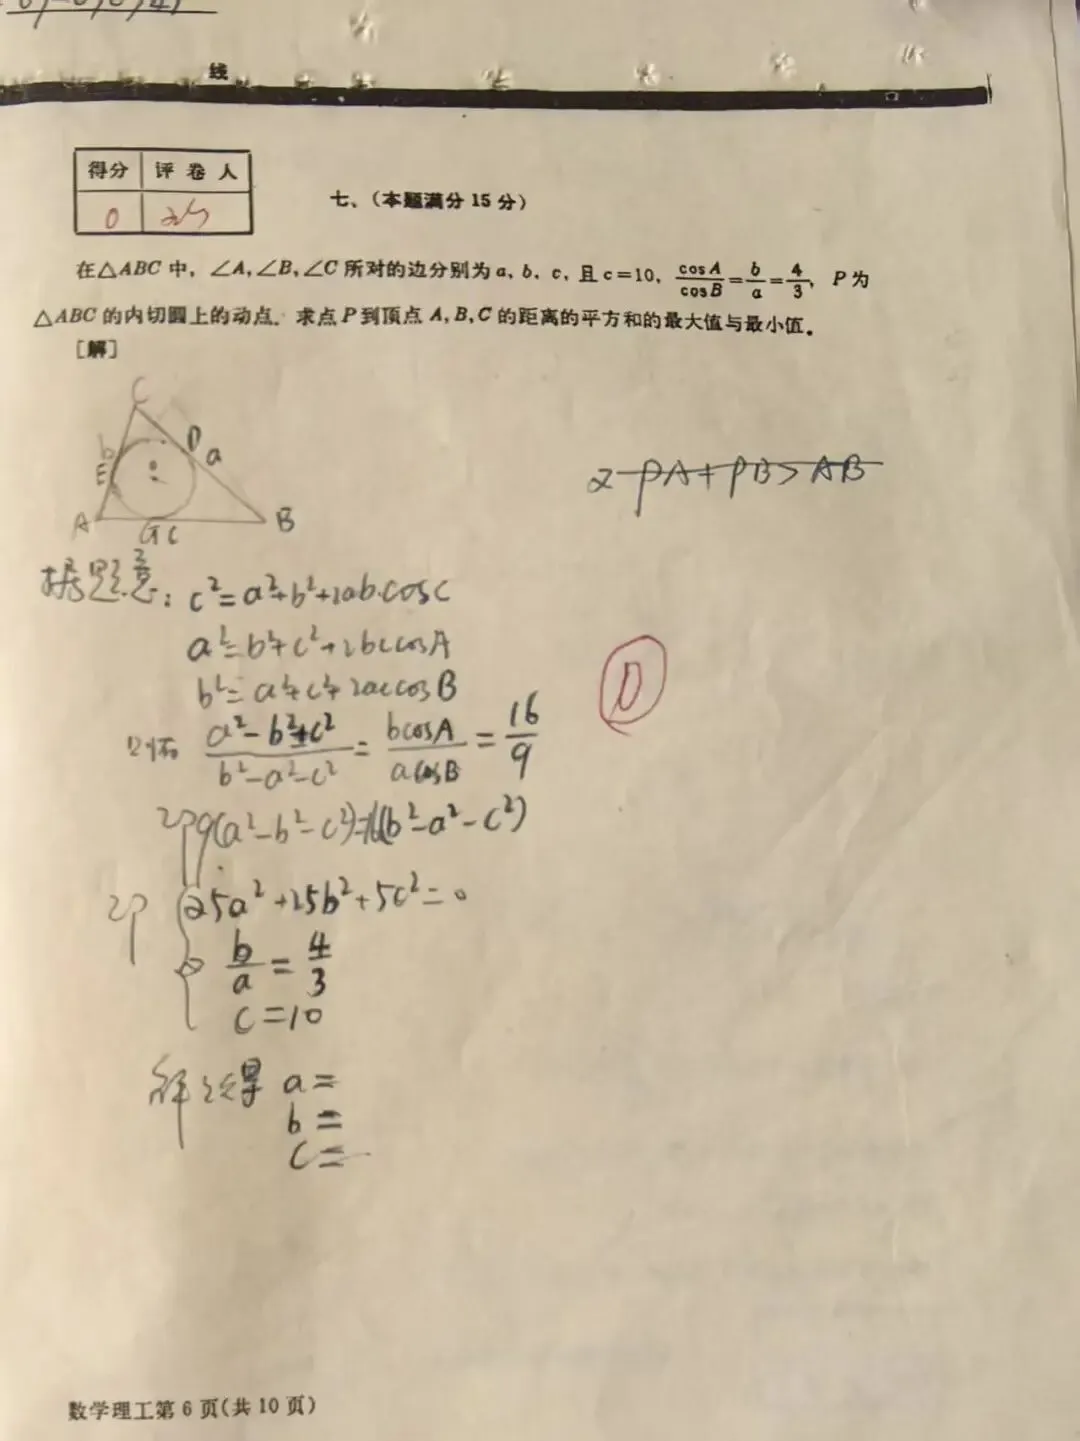 线
得分 评卷人
0
七、(本题满分15分)
在△ABC中, ∠A,∠B,∠C所对的边分别为a, b, c, 且c=10, cosA/cosB=b/a=4/3, P为
△ABC的内切圆上的动点. 求点P到顶点A,B,C的距离的平方和的最大值与最小值。
[解]
C
b D a
E
A G c B
PA+PB>AB
据题意: c²=a²+b²+2ab·cosC
a²=b²+c²+2bccosA
b²=a²+c²+2accosB
0
(a²-b²±c²)/(b²-a²-c²)=bcosA/acosB=16/9
即9(a²-b²-c²)=16(b²-a²-c²)
即 25a²+25b²+5c²=0
b/a=4/3
c=10
解之得 a=
b=
c=
数学理工第6页(共10页)